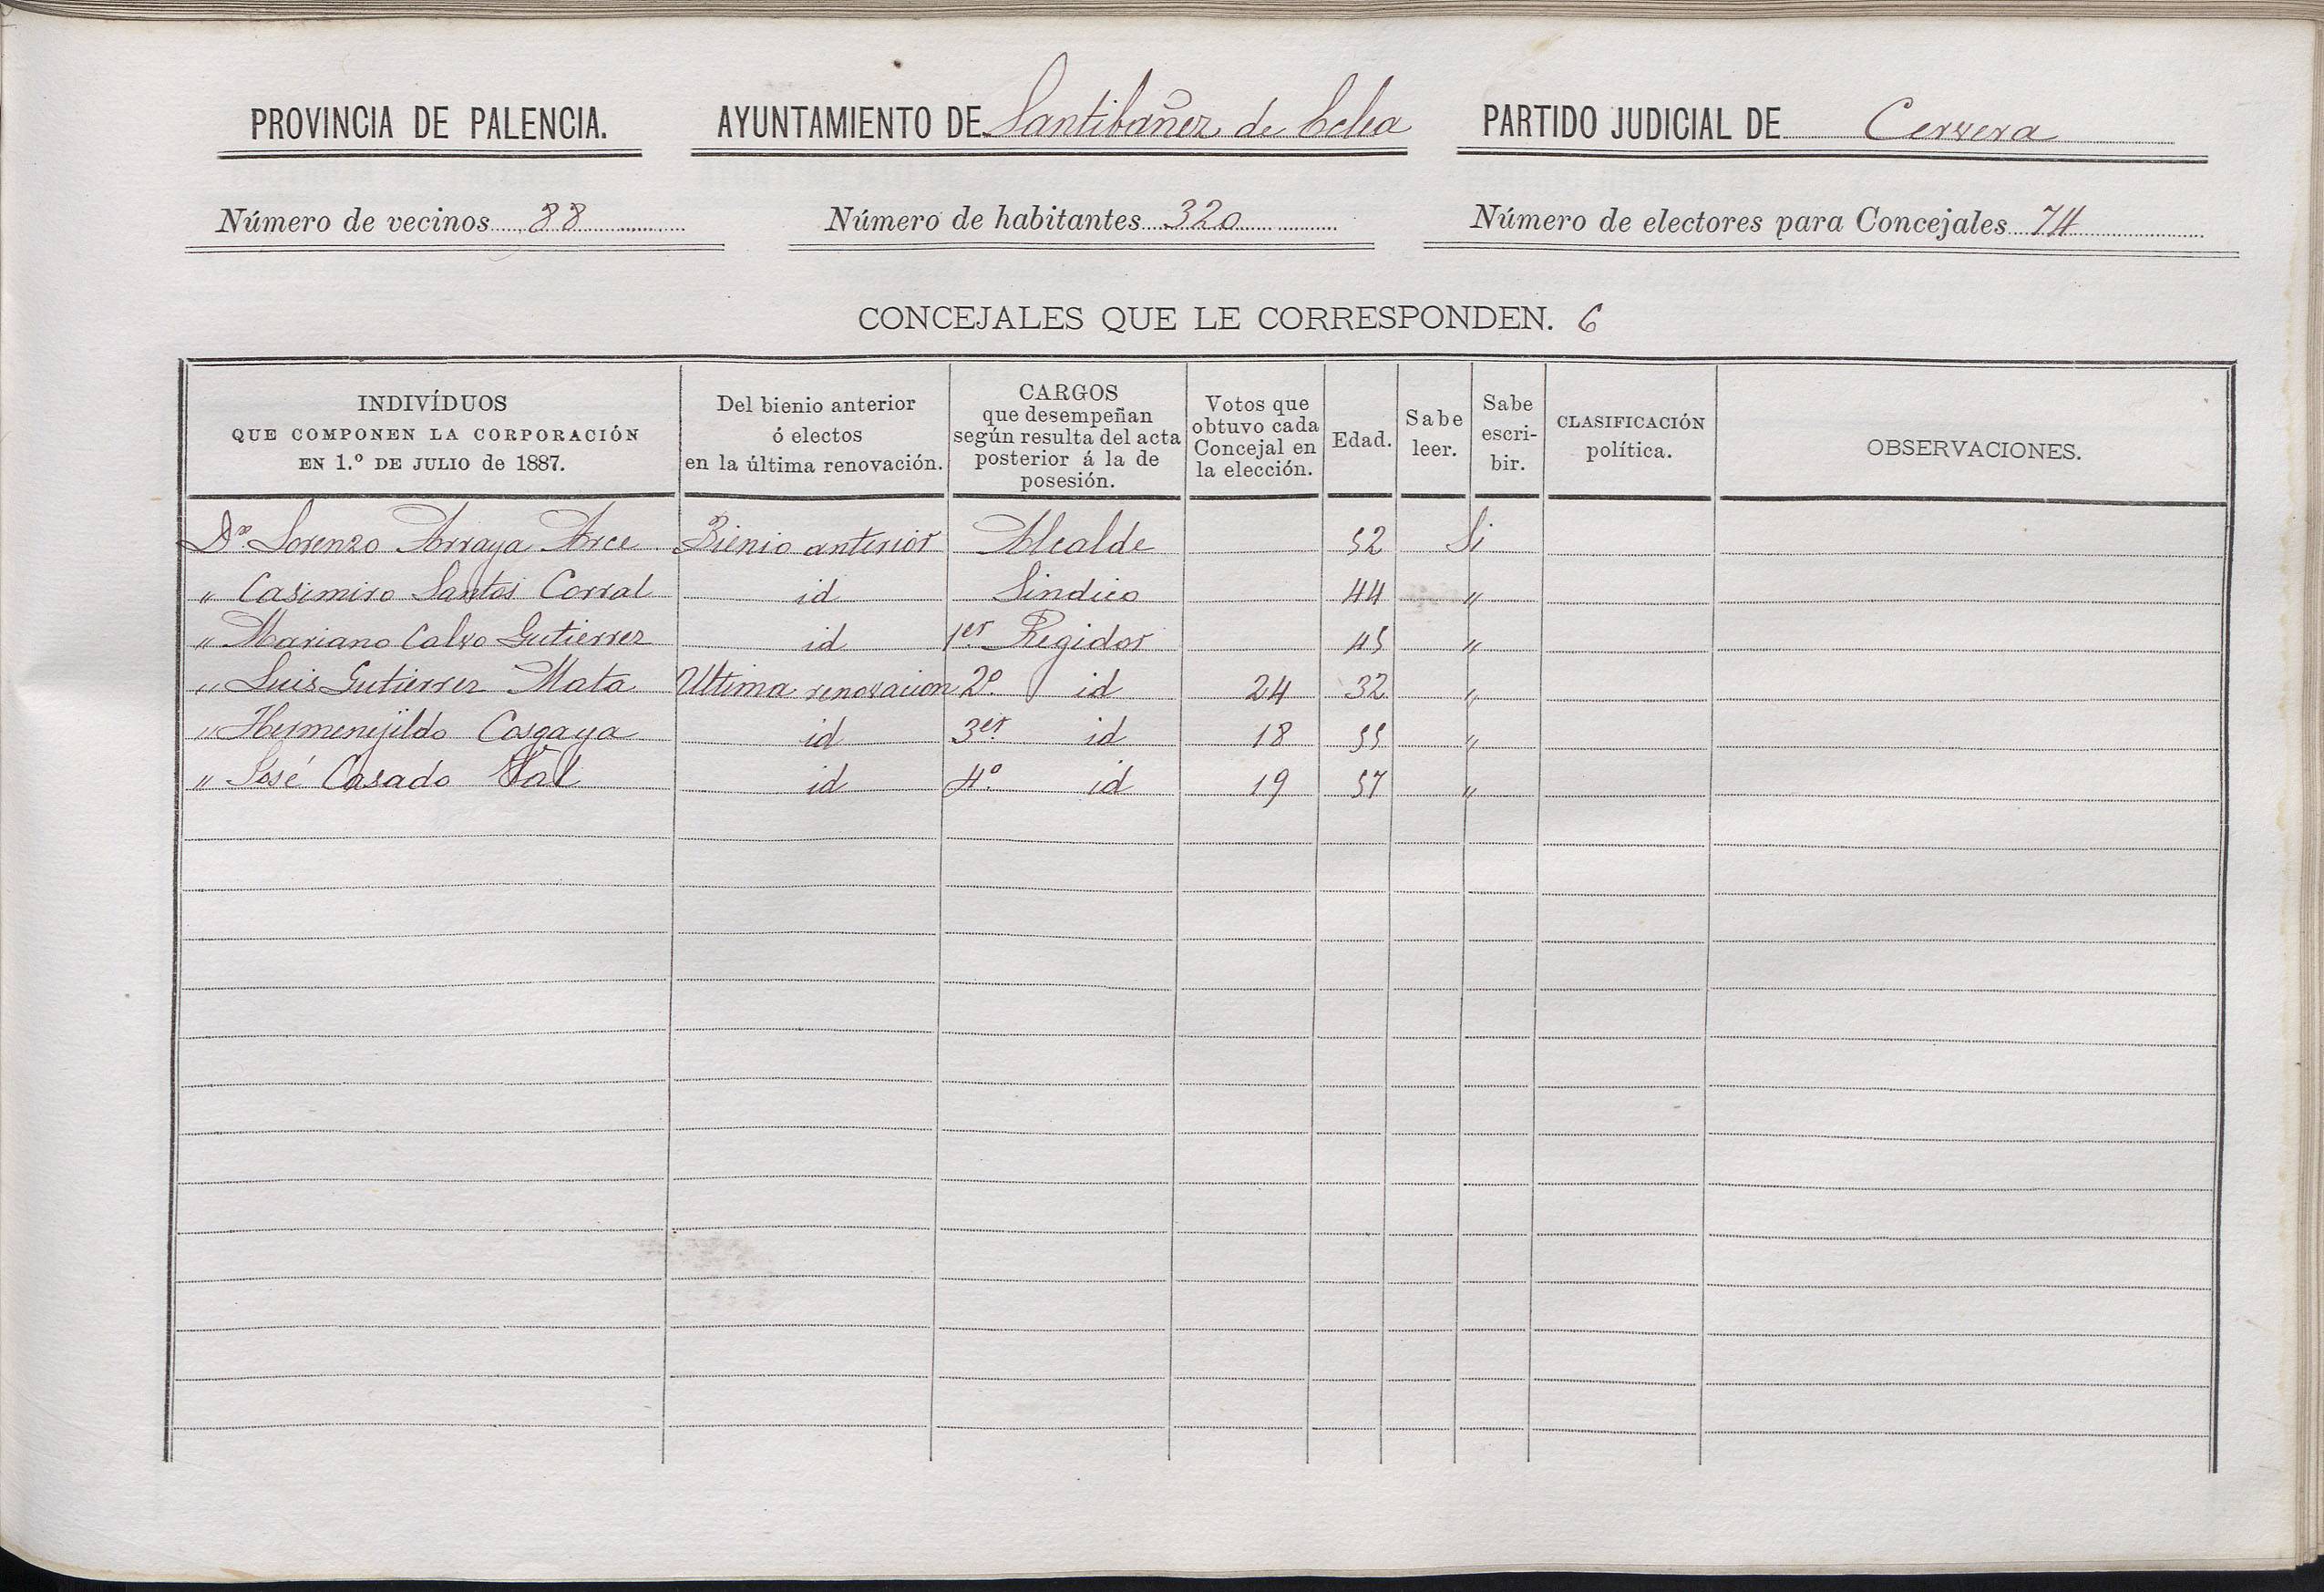 PROVINCIA DE PALENCIA. AYUNTAMIENTO DE Santibañez de Ecla PARTIDO JUDICIAL DE Cervera
Número de vecinos 88 Número de habitantes 320 Número de electores para Concejales 74
CONCEJALES QUE LE CORRESPONDEN. 6
INDIVÍDUOS
QUE COMPONEN LA CORPORACIÓN
EN 1.º DE JULIO de 1887.
Del bienio anterior
ó electos
en la última renovación.
CARGOS
que desempeñan
según resulta del acta
posterior á la de
posesión.
Votos que
obtuvo cada
Concejal en
la elección.
Edad.
Sabe
leer.
Sabe
escri-
bir.
CLASIFICACIÓN
política.
OBSERVACIONES.
Dn. Lorenzo Arraya Arce Bienio anterior Alcalde 52 Si
" Casimiro Santos Corral id Sindico 44 "
" Mariano Calvo Gutierrez id 1er Regidor 45 "
" Luis Gutierrez Mata Ultima renovacion 2º id 24 32 "
" Hermenejildo Cosgaya id 3er id 18 55 "
" José Casado Val id 4º id 19 57 "